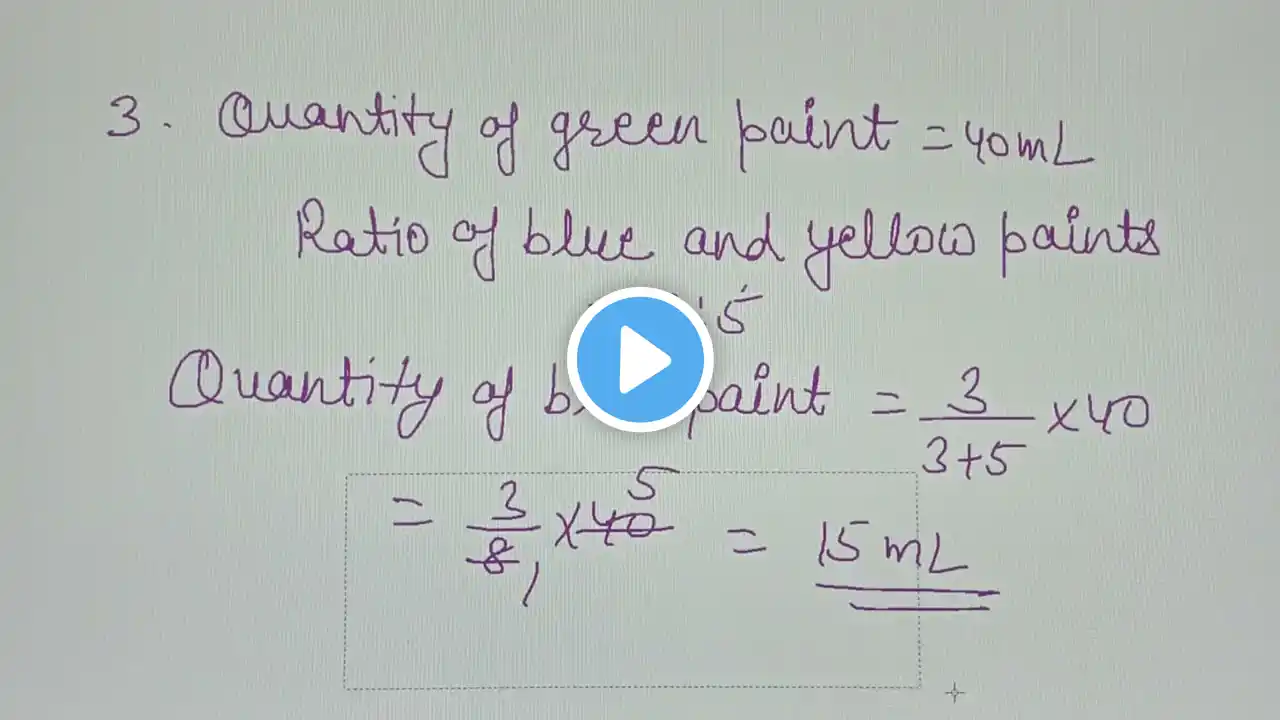 3. Quantity of green paint = 40mL
Ratio of blue and yellow paints
:5
Quantity of paint = 3/(3+5) × 40
= 3/8 × 40 = 15 mL
5
1